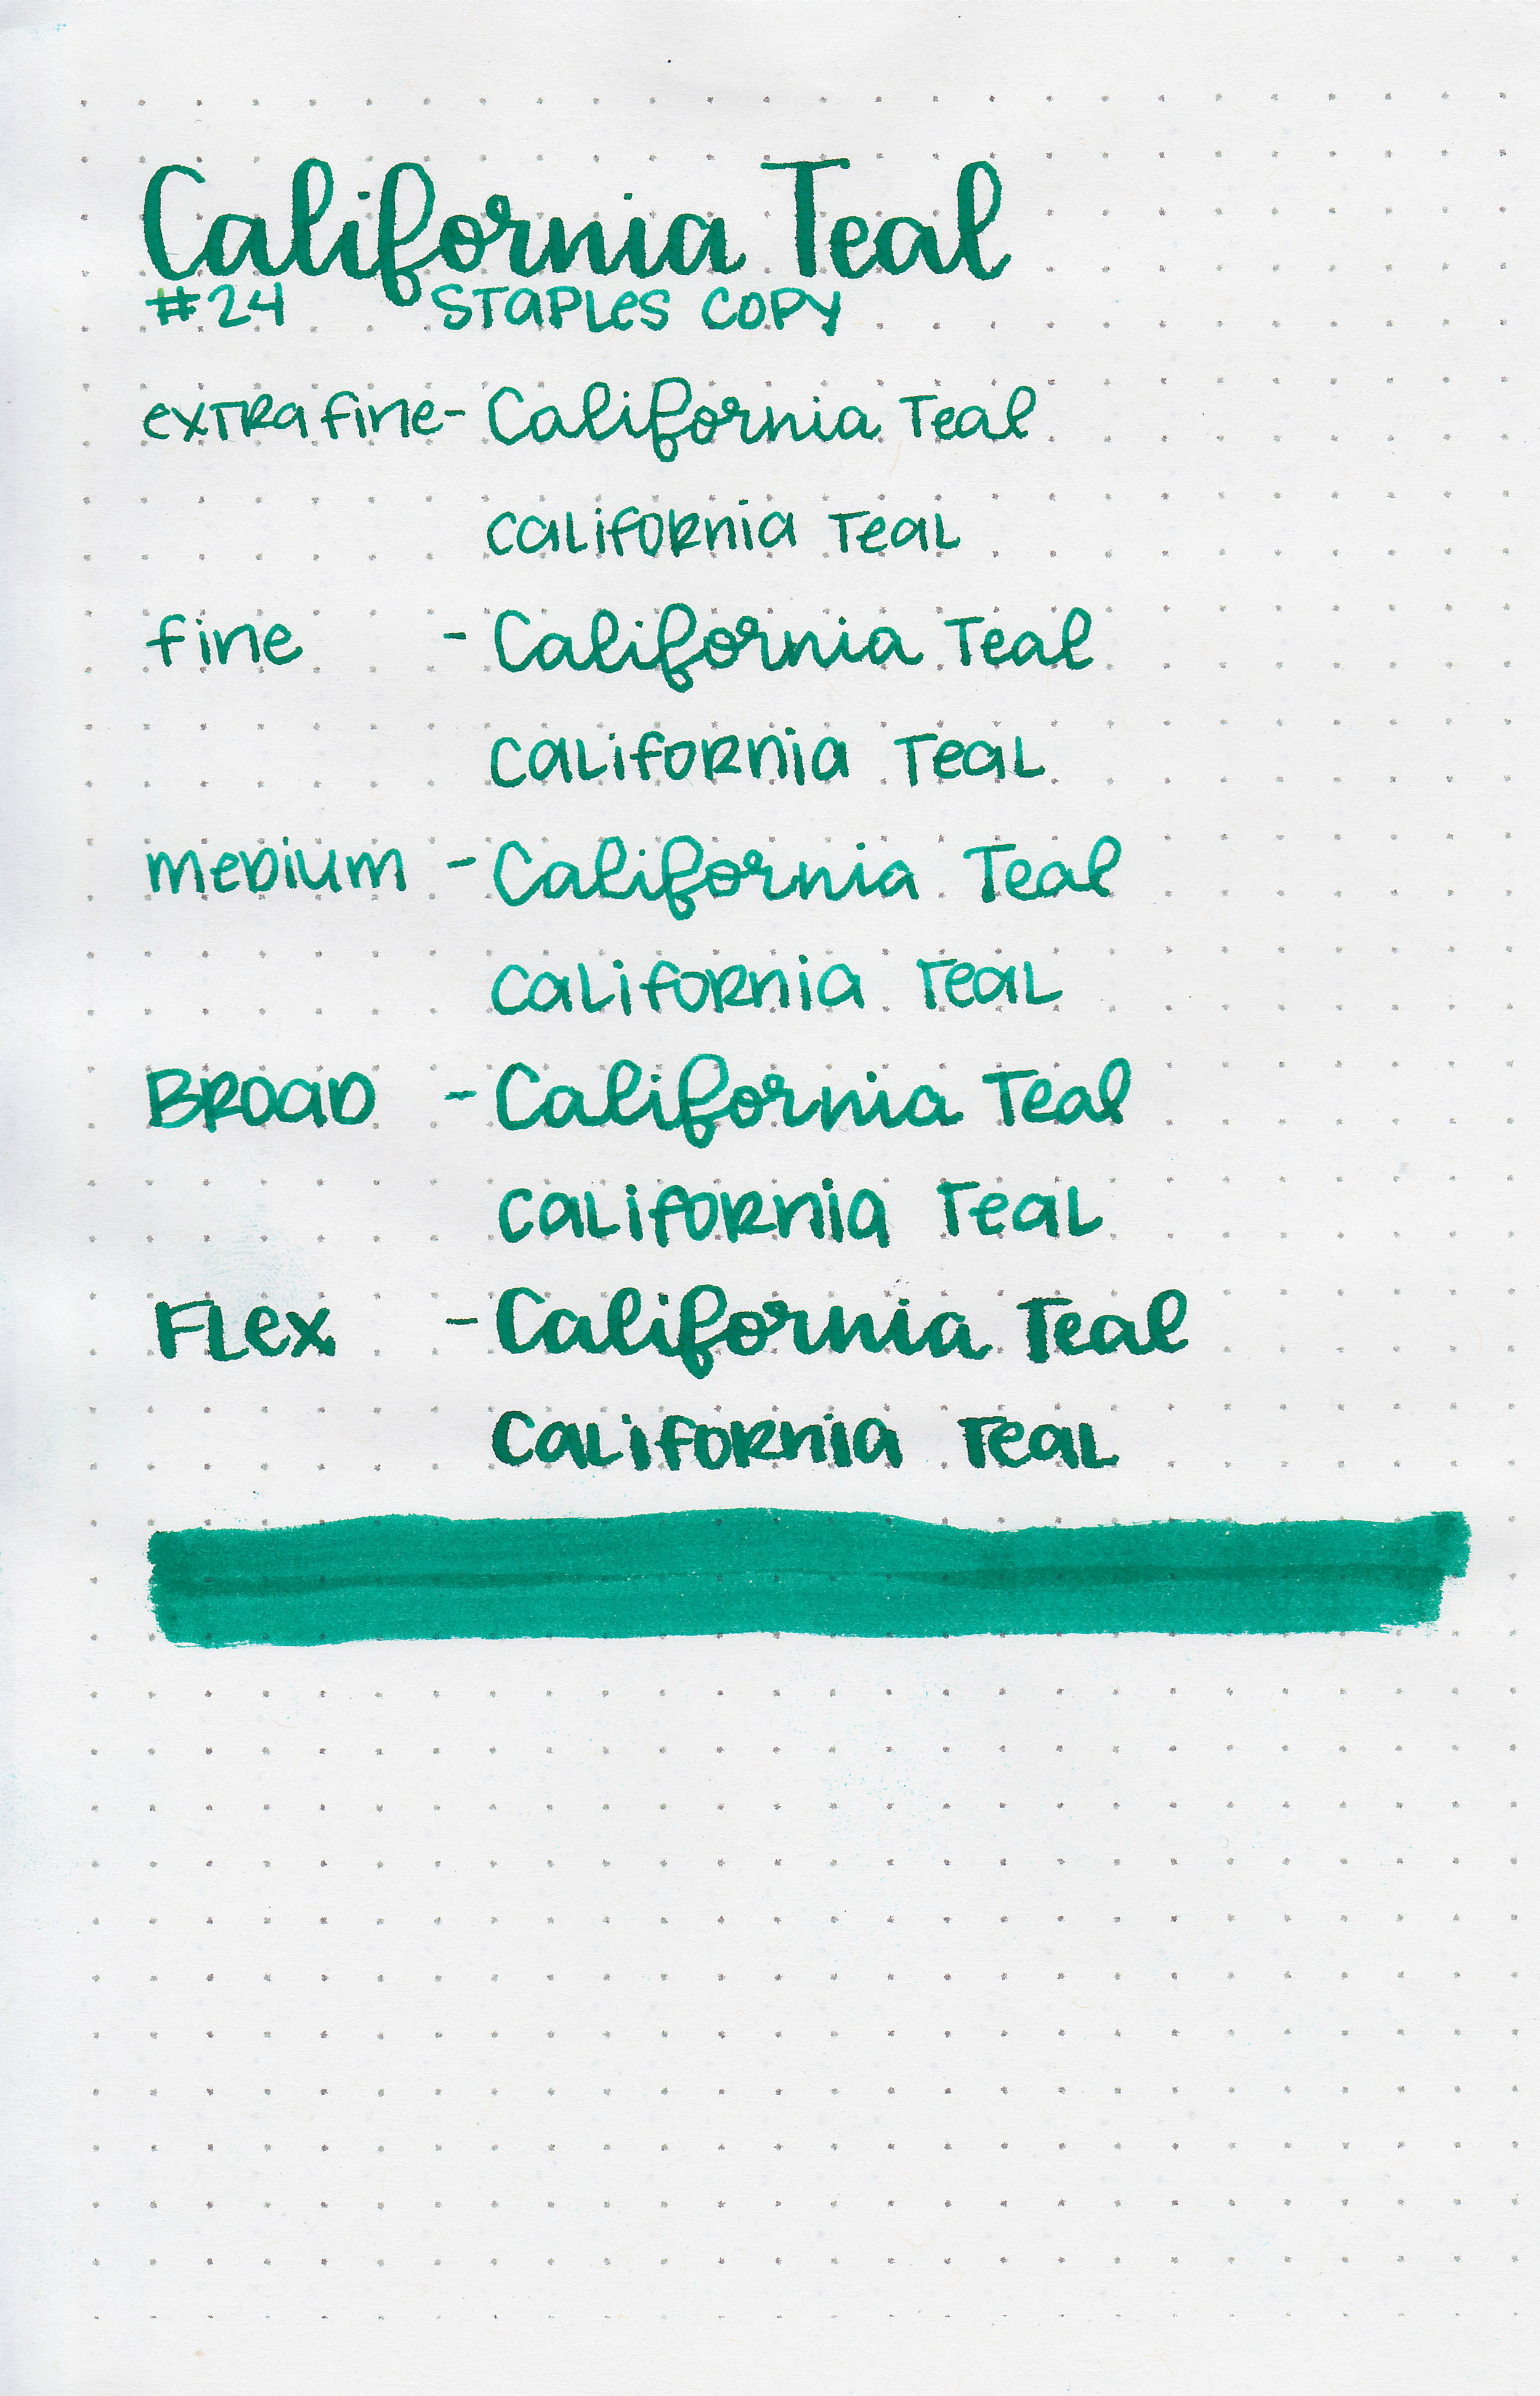 California Teal
#24 STAPLes COPY
exTRa fine - California Teal
CaLifORnia TeaL
fine - California Teal
CaLifORnia TeaL
meDium - California Teal
CaLifORnia TeaL
BROaD - California Teal
CaLifORnia TeaL
FLex - California Teal
CaLifORnia TeaL